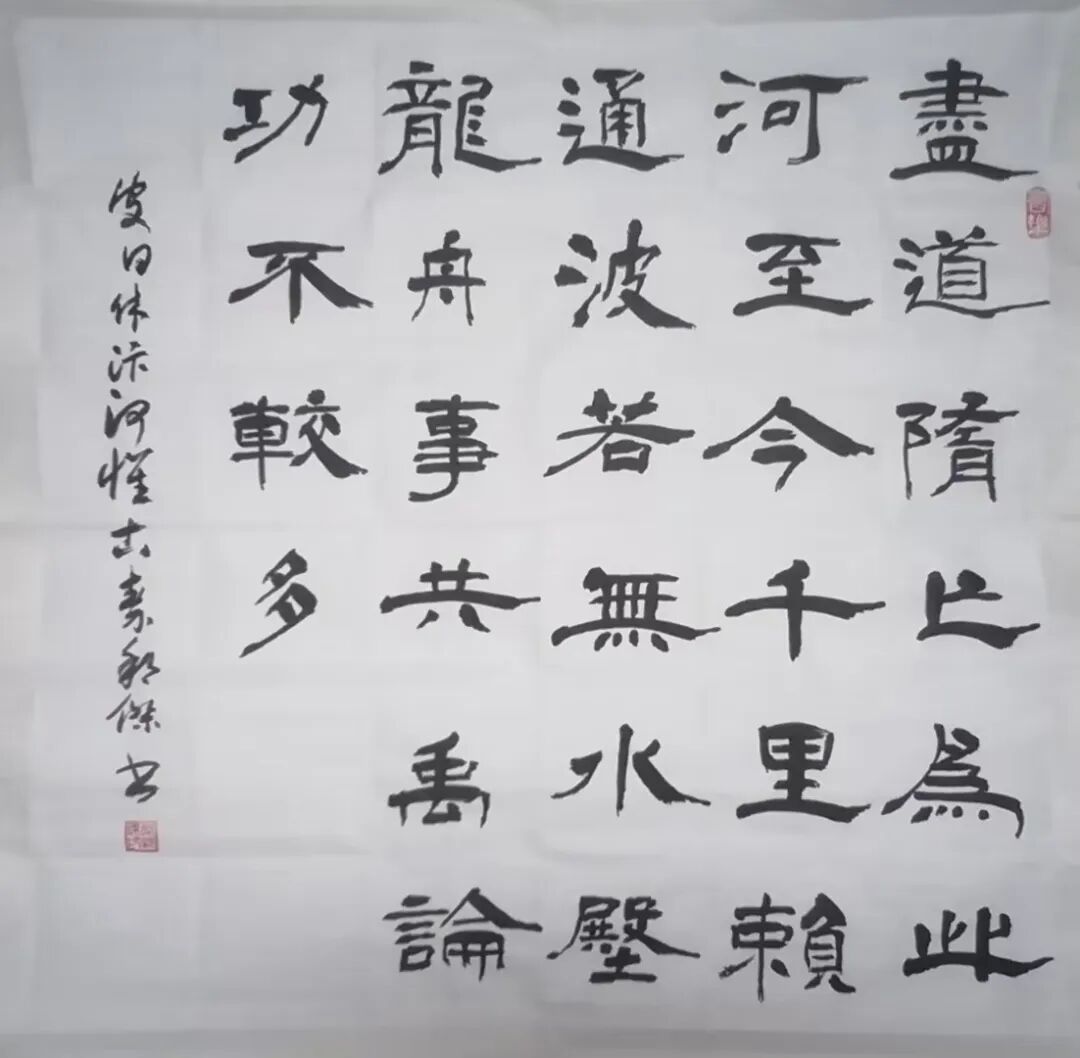 盡道隋亡為此
河至今千里賴
通波若無水壂
龍舟事共禹論
功不較多
皮日休汴河懷古秦傑书